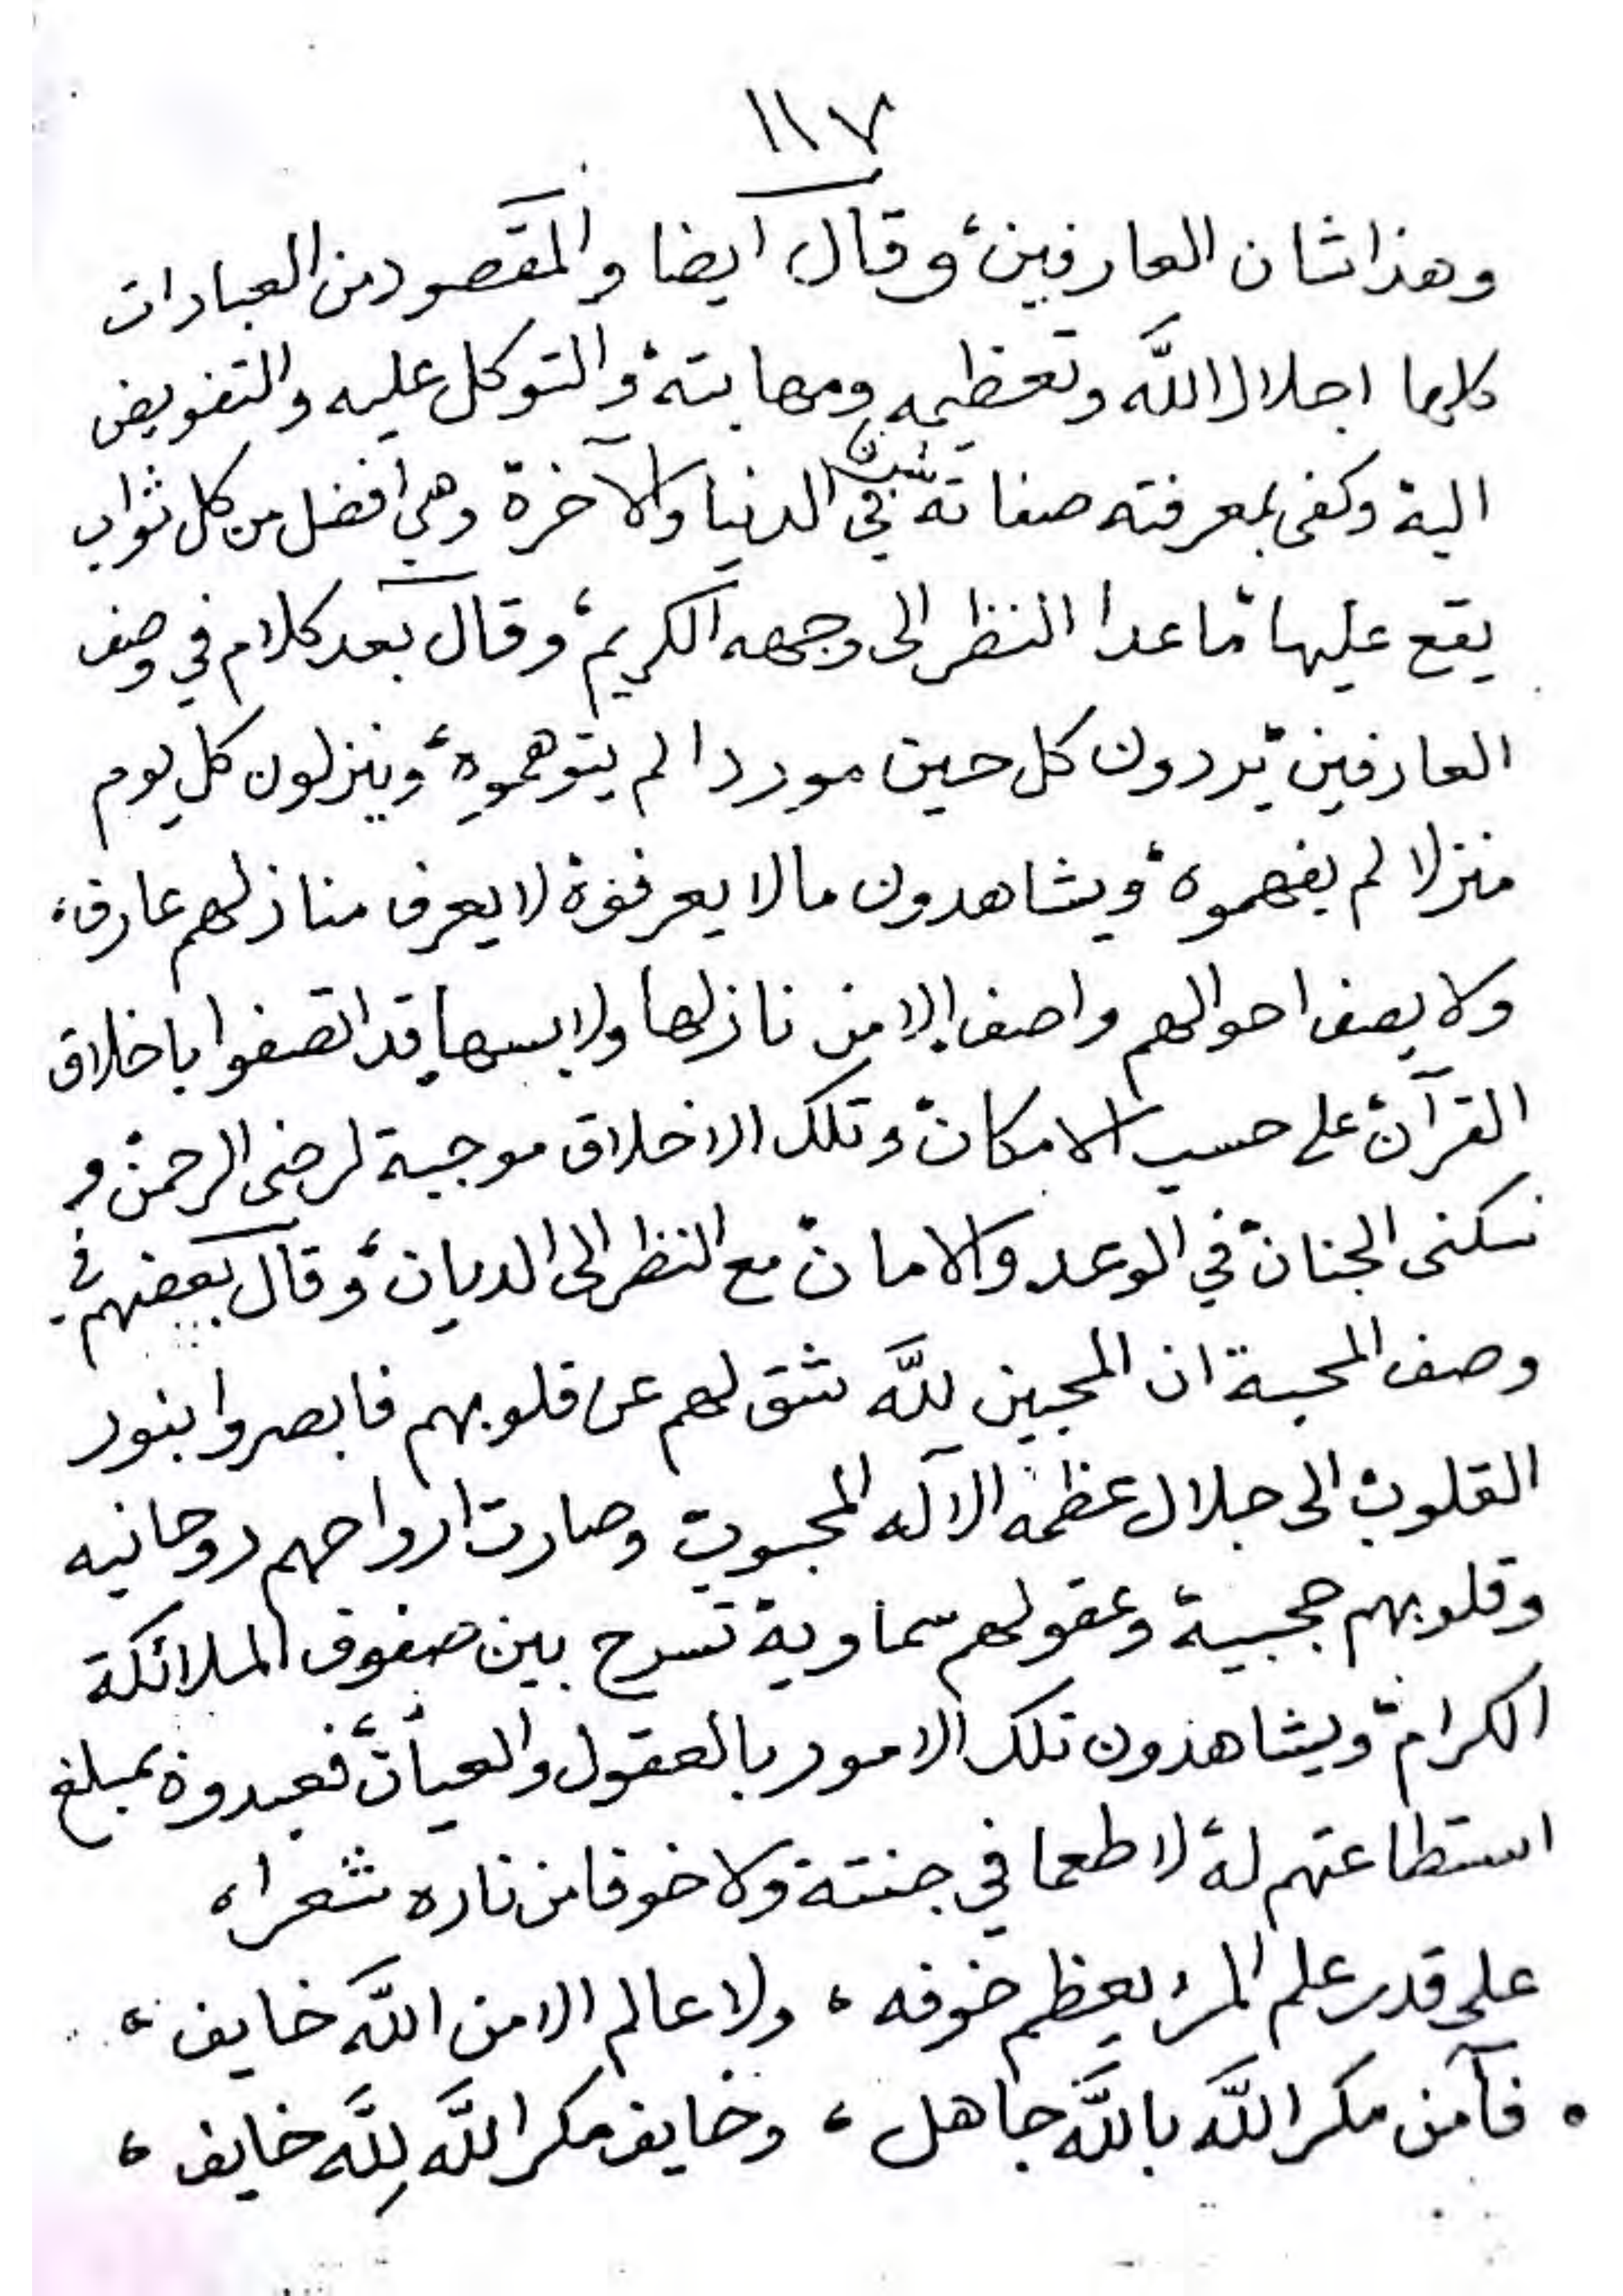 ١١٧
وهذا شان العارفين، وقال ايضا والمقصود من العبادات
كلها اجلال الله وتعظيمه ومهابتة، والتوكل عليه والتفويض
الية وكفى بمعرفته صفاتة شرفا في الدنيا والآخرة وهي أفضل من كل ثواب
يقع عليها ما عدا النظر الى وجهه الكريم، وقال بعد كلام في وصف
العارفين يردون كل حين موردا لم يتوهموه، وينزلون كل يوم
منزلا لم يفهموه، ويشاهدون مالا يعرفوة لا يعرف منازلهم عارف،
ولا يصف احوالهم واصف الا من نازلها ولابسها قد اتصفوا باخلاق
القرآن على حسب الامكان وتلك الاخلاق موجبة لرضى الرحمن و
سكنى الجنان في الوعد والامان مع النظر الى الديان، وقال بعضهم في
وصف المحبة ان المحبين لله شق لهم عن قلوبهم فابصروا بنور
القلوب الى جلال عظمه الآله المحبوب وصارت ارواحهم روحانيه
وقلوبهم حجبية وعقولهم سماوية تسرح بين صفوف الملائكة
الكرام، ويشاهدون تلك الامور بالعقول والعيان، فعبدوة بمبلغ
استطاعتهم لة، لا طمعا في جنتة ولا خوفا من ناره شعرا،
على قدر علم المرء يعظم خوفه ، ولا عالم الا من الله خايف ،
• فآمن مكر الله بالله جاهل ، وخايف مكر الله لِله خايف ،